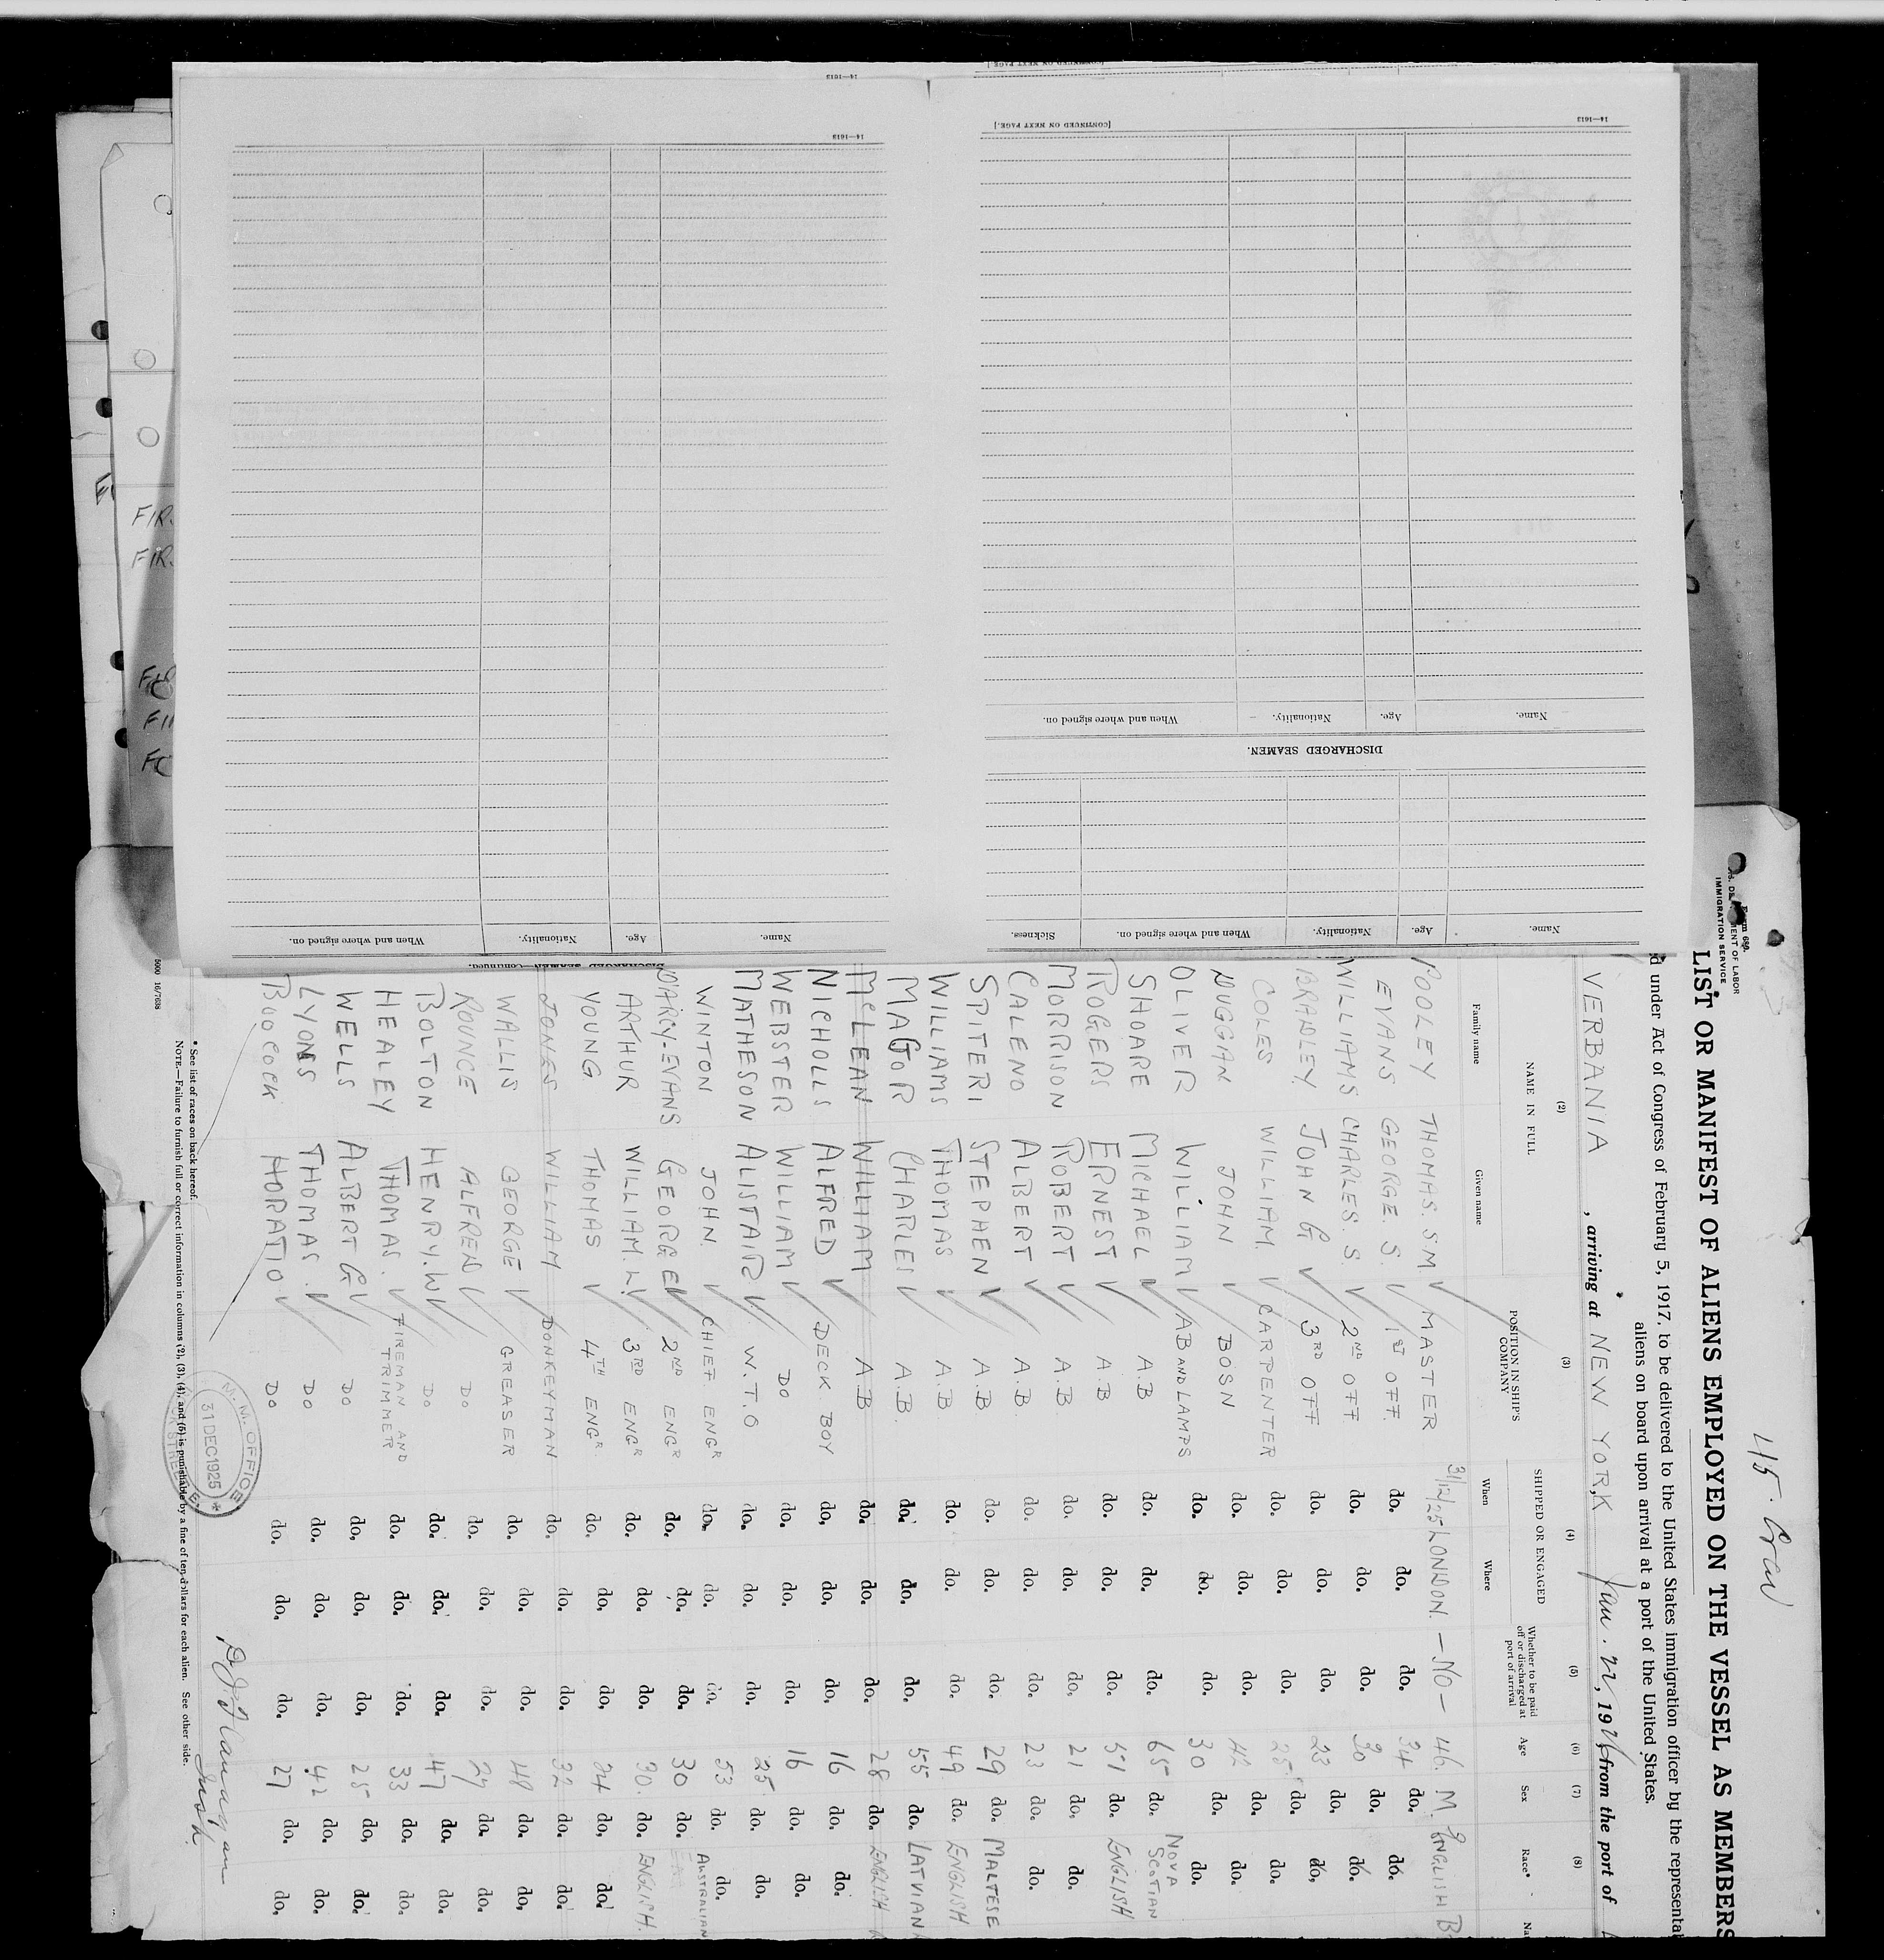 14—1613
[CONTINUED ON NEXT PAGE.]
14—1613
[CONTINUED ON NEXT PAGE.]
14—1613
Name.
Age.
Nationality.
When and where signed on.
DISCHARGED SEAMEN.
Name.
Age.
Nationality.
When and where signed on.
Sickness.
Name.
Age.
Nationality.
When and where signed on.
DISCHARGED SEAMEN—Continued.
FIR
FIR
415. Crew
IMMIGRATION SERVICE
LIST OR MANIFEST OF ALIENS EMPLOYED ON THE VESSEL AS MEMBERS
under Act of Congress of February 5, 1917, to be delivered to the United States immigration officer by the representa
aliens on board upon arrival at a port of the United States.
VERBANIA, arriving at NEW YORK Jan. from the port of
(2) (3) (4) (5) (6) (7) (8)
NAME IN FULL
Family name Given name
POSITION IN SHIP'S COMPANY
SHIPPED OR ENGAGED
When Where
Whether to be paid off or discharged at port of arrival
Age Sex Race*
POOLEY THOMAS. S M MASTER 31/12/25 LONDON. — NO — 46. M. ENGLISH
EVANS GEORGE. S. 1ST OFF. do. do. do. 34 do. do.
WILLIAMS CHARLES. S. 2ND OFF. do. do. do. 30 do. do.
BRADLEY JOHN G 3RD OFF do. do. do. 23 do. do.
COLES WILLIAM. CARPENTER do. do. do. 25 do. do.
DUGGAN JOHN BOSN do. do. do. 42 do. do.
OLIVER WILLIAM AB AND LAMPS do. do. do. 30 do. do.
SHOARE MICHAEL A.B do. do. do. 65 do. NOVA SCOTIAN
ROGERS ERNEST A.B do. do. do. 51 do. ENGLISH
MORRISON ROBERT A.B. do. do. do. 21 do. do.
CALENO ALBERT A.B do. do. do. 23 do. do.
SPITERI STEPHEN A.B do. do. do. 29 do. MALTESE
WILLIAMS THOMAS A.B do. do. do. 49 do. ENGLISH
MAGOR CHARLES A.B. do. do. do. 55 do. LATVIAN
McLEAN WILLIAM A.B do. do. do. 28 do. ENGLISH
NICHOLLS ALFRED DECK BOY do. do. do. 16 do. do.
WEBSTER WILLIAM DO do. do. do. 16 do. do.
MATHESON ALISTAIR W.T.O do. do. do. 25 do. do.
WINTON JOHN. CHIEF ENGR do. do. do. 53 do. do. AUSTRALIAN
D'ARCY-EVANS GEORGE 2ND ENGR do. do. do. 30 do.
ARTHUR WILLIAM. 3RD ENGR do. do. do. 30. do. ENGLISH.
YOUNG THOMAS 4TH ENGR. do. do. do. 24 do. do.
JONES WILLIAM DONKEYMAN do. do. do. 32 do. do.
WALLIS GEORGE GREASER do. do. do. 48 do. do.
ROUNCE ALFRED DO do. do. do. 27 do. do.
BOLTON HENRY. W DO do. do. do. 47 do. do.
HEALEY THOMAS. FIREMAN AND TRIMMER do. do. do. 33 do. do.
WELLS ALBERT G DO do. do. do. 25 do. do.
LYONS THOMAS. DO do. do. do. 42 do. do.
BOOCOCK HORATIO DO do. do. do. 27 do. do.
* See list of races on back hereof.
NOTE.—Failure to furnish full or correct information in columns (2), (3), (4), and (5) is punishable by a fine of ten dollars for each alien. See other side.
5000 16/7638
M. M. OFFICE
31 DEC 1925